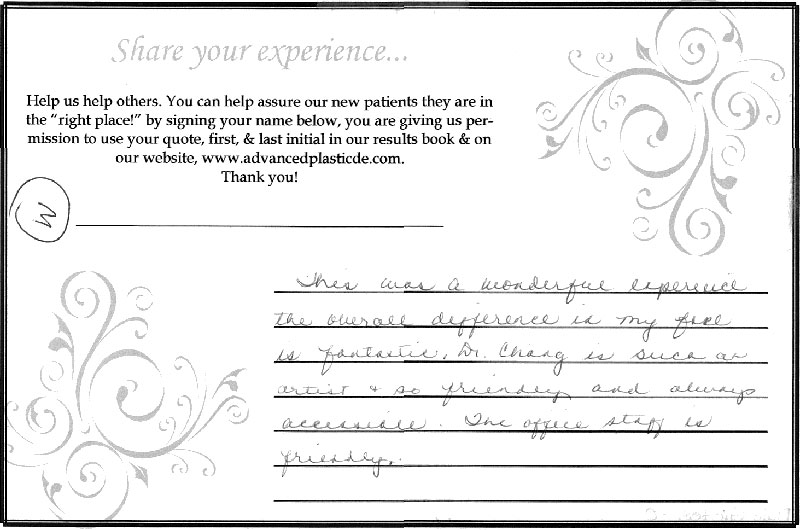 Share your experience...
Help us help others. You can help assure our new patients they are in
the "right place!" by signing your name below, you are giving us per-
mission to use your quote, first, & last initial in our results book & on
our website, www.advancedplasticde.com.
Thank you!
M
This was a wonderful experience
the overall difference in my face
is fantastic. Dr. Chang is such an
artist + so friendly and always
accessible. The office staff is
friendly.